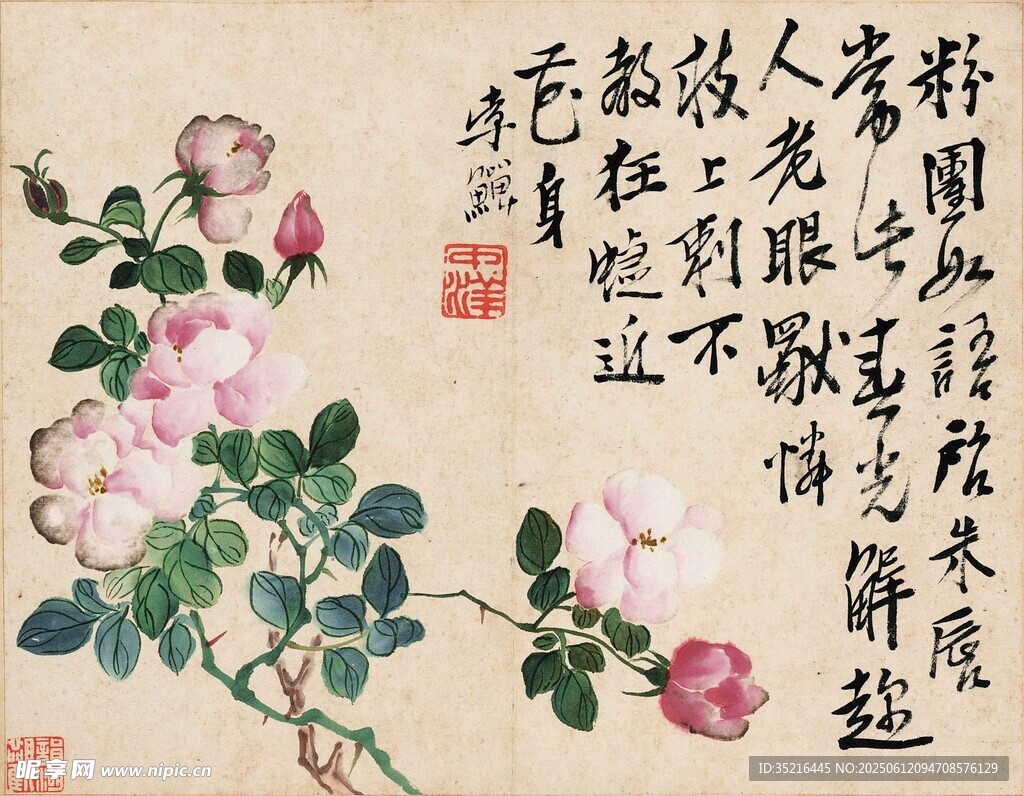 粉團如語啓朱唇
常占春光解趁
人老眼憐
枝上刺不
教狂蝶近
花身
李鱓
中洋
昵享网 www.nipic.cn
ID:35216445 NO:20250612094708576129